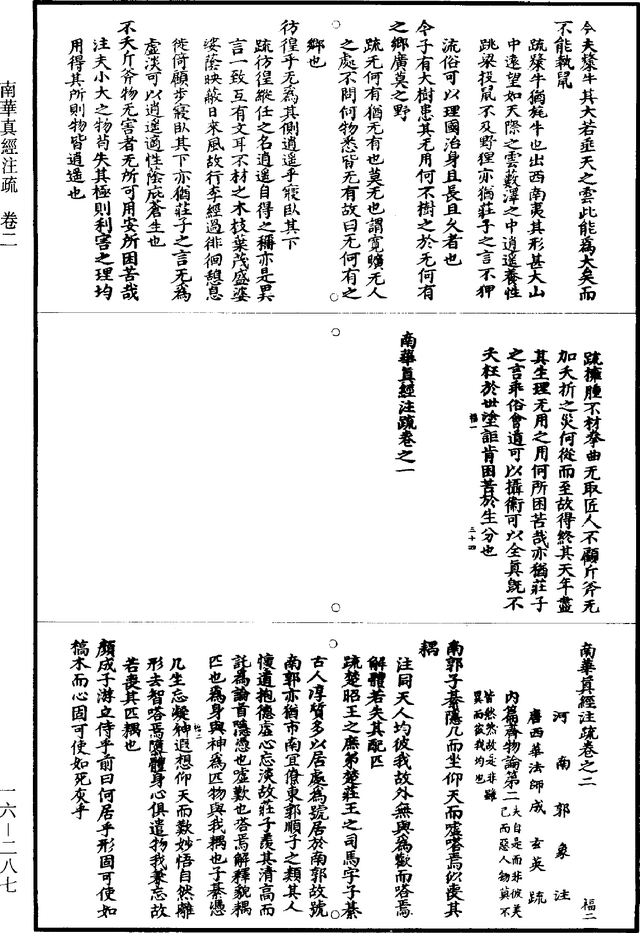 南華真經注疏 卷二
一六—二八七
今夫斄牛其大若垂天之雲此能為大矣而
不能執鼠
疏斄牛猶旄牛也出西南夷其形甚大山
中遠望如天際之雲藪澤之中逍遙養性
跳梁投鼠不及野狸亦猶莊子之言不狎
流俗可以理國治身且長且久者也
今子有大樹患其无用何不樹之於无何有
之鄉廣莫之野
疏无何有猶无有也莫无也謂寬曠无人
之處不問何物悉皆无有故曰无何有之
鄉也
彷徨乎无為其側逍遙乎寢臥其下
疏彷徨縱任之名逍遙自得之稱亦是異
言一致互有文耳不材之木枝葉茂盛婆
娑蔭映蔽日來風故行李經過徘徊憩息
徙倚顧步寢臥其下亦猶莊子之言无為
虛淡可以逍遙適性蔭庇蒼生也
不夭斤斧物无害者无所可用安所困苦哉
注夫小大之物苟失其極則利害之理均
用得其所則物皆逍遙也
疏擁腫不材拳曲无取匠人不顧斤斧无
加夭折之災何從而至故得終其天年盡
其生理无用之用何所困苦哉亦猶莊子
之言乖俗會道可以攝衛可以全真既不
夭枉於世塗詎肯困苦於生分也
福一 三十四
南華真經注疏卷之一
南華真經注疏卷之二 福二
河南郭象注
唐西華法師成玄英疏
內篇齊物論第二夫自是而非彼美己而惡人物莫不
皆然然故是非雖異而彼我均也
南郭子綦隱几而坐仰天而噓嗒焉似喪其
耦
注同天人均彼我故外無與為歡而嗒焉
解體若失其配匹
疏楚昭王之庶弟楚莊王之司馬字子綦
古人淳質多以居處為號居於南郭故號
南郭亦猶市南宜僚東郭順子之類其人
懷道抱德虛心忘淡故莊子羨其清高而
託為論首隱憑也噓歎也嗒焉解釋貌耦
匹也為身與神為匹物與我耦也子綦憑
几坐忘凝神遐想仰天而歎妙悟自然離
形去智嗒焉隳體身心俱遣物我兼忘故
若喪其匹耦也
顏成子游立侍乎前曰何居乎形固可使如
槁木而心固可使如死灰乎